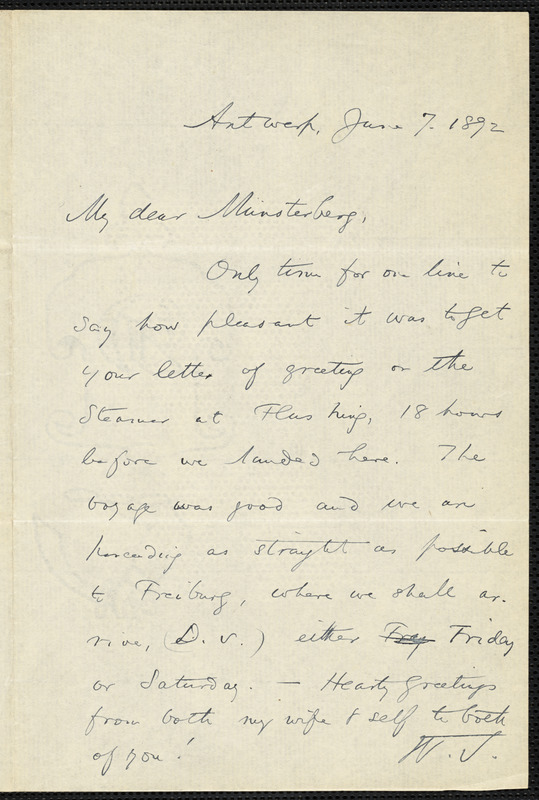 Antwerp, June 7. 1892
My dear Münsterberg,
Only time for one line to
say how pleasant it was to get
your letter of greeting on the
Steamer at Flushing, 18 hours
before we landed here. The
voyage was good and we are
proceeding as straight as possible
to Freiburg, where we shall ar-
rive, (D. v.) either Fray Friday
or Saturday. — Hearty greetings
from both my wife & self to both
of you! W. J.